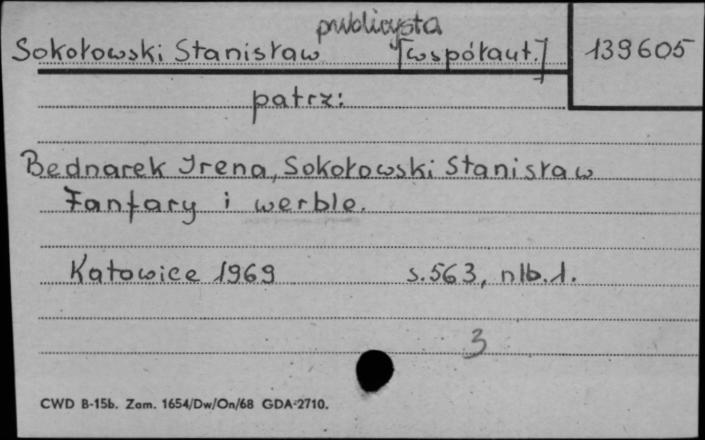 publicysta
Sokołowski Stanisław [współaut.] 139605
patrz:
Bednarek Irena, Sokołowski Stanisław
Fanfary i werble.
Katowice 1969 s.563, nlb.1.
3
CWD B-15b. Zam. 1654/Dw/On/68 GDA-2710.